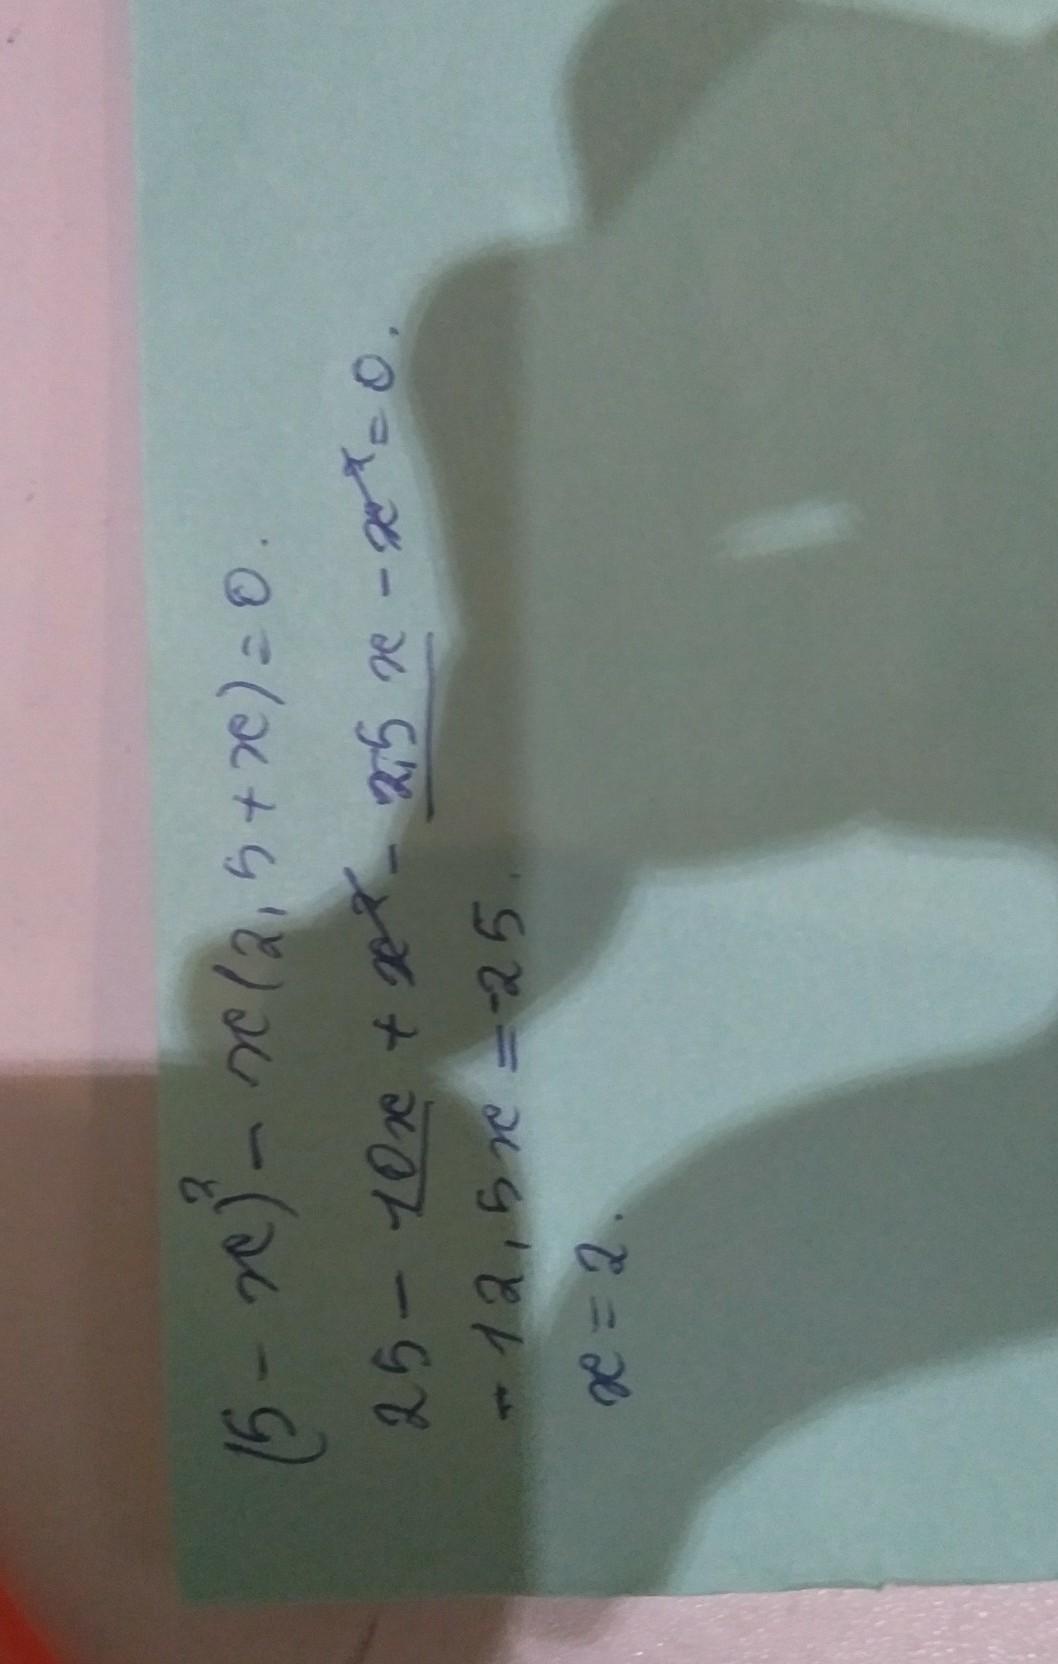 (5 - x)² - x(2,5 + x) = 0.
25 - 10x + x² - 2,5x - x² = 0.
-12,5x = -25.
x = 2.